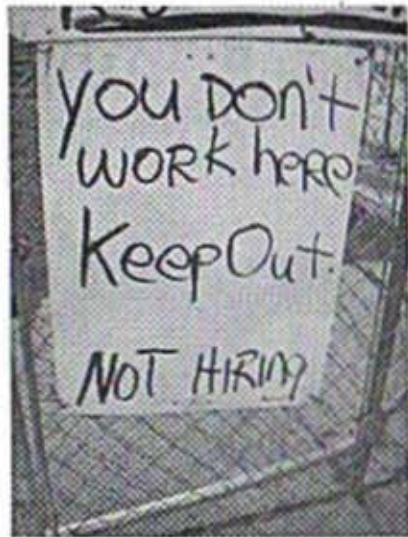 you Don't
WORK here
Keep Out.
NOT HIRING